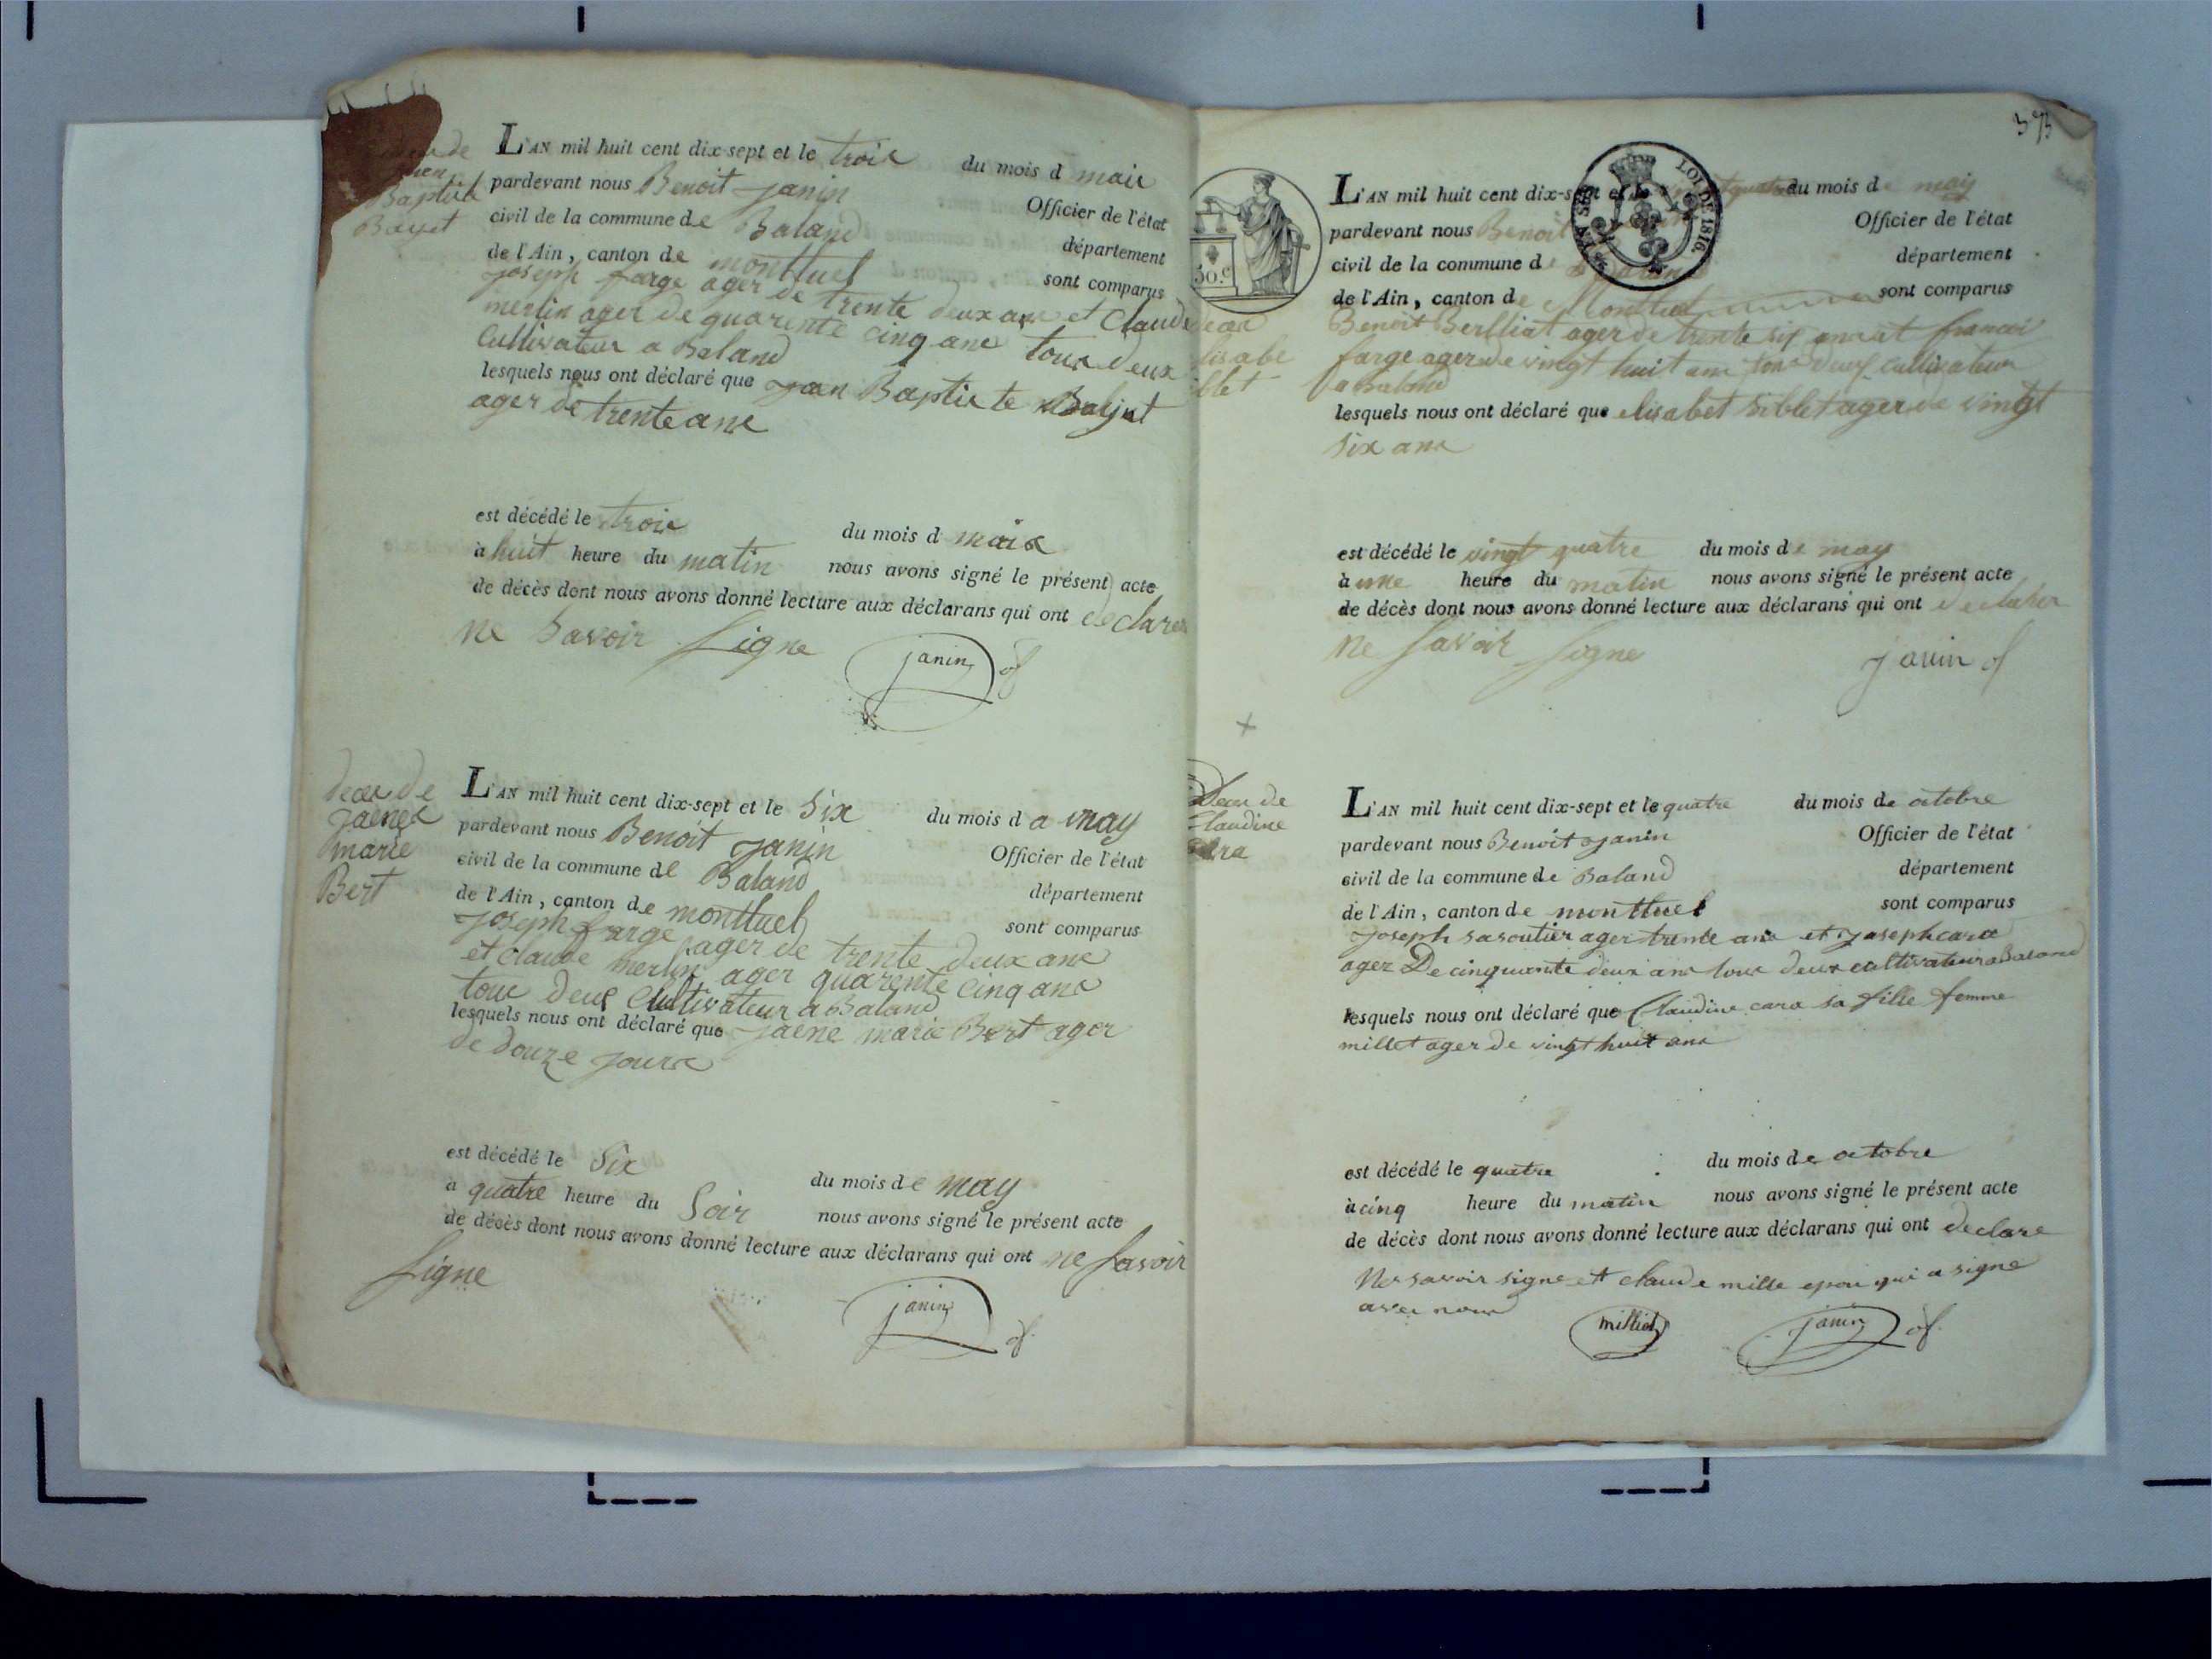 de
Baptist
Bayet
L'AN mil huit cent dix-sept et le troie du mois d maie
pardevant nous Benoit janin Officier de l'état
civil de la commune de Baland département
de l'Ain, canton de montluel sont comparus
joseph farge ager de trente deux ane et Claude
merlin ager de quarente cinq ane toue deux
Cultivateur a Baland
lesquels nous ont déclaré que jean Baptiste
ager de trente ane
est décédé le troie du mois d maie
à huit heure du matin nous avons signé le présent acte
de décès dont nous avons donné lecture aux déclarans qui ont declarer
ne Savoir Signe
janin of
decer de
jaene
marie
Bert
L'AN mil huit cent dix-sept et le Six du mois d a may
pardevant nous Benoit janin Officier de l'état
civil de la commune de Baland département
de l'Ain, canton de montluel sont comparus
joseph farge ager de trente deux ane
et claude merlin ager quarente cinq ane
toue deux Cultivateur a Baland
lesquels nous ont déclaré que jaene marie Bert ager
de douze joure
est décédé le Six du mois de may
à quatre heure du Soir nous avons signé le présent acte
de décès dont nous avons donné lecture aux déclarans qui ont ne Savoir
Signe
janin of
LOI DE 1816.
30.c
L'AN mil huit cent dix-sept et le quatre du mois de may
pardevant nous Benoit Officier de l'état
civil de la commune d département
de l'Ain, canton de Montluel sont comparus
Benoit Berlliat ager de trente six ane et francoi
farge ager de vingt huit ane toue deux cultivateur
a Baland
lisabe
iblet
lesquels nous ont déclaré que elisabet siblet ager de vingt
six ane
est décédé le vingt quatre du mois de may
à une heure du matin nous avons signé le présent acte
de décès dont nous avons donné lecture aux déclarans qui ont declarer
ne Savoir Signe
janin of
Decer de
Claudine
Cara
L'AN mil huit cent dix-sept et le quatre du mois de octobre
pardevant nous Benoit janin Officier de l'état
civil de la commune de Baland département
de l'Ain, canton de montluel sont comparus
joseph savoutier ager trente ane et joseph cara
ager De cinquante deux ane toue deux cultivateur a Baland
lesquels nous ont déclaré que Claudine cara sa fille femme
millet ager de vingt huit ane
est décédé le quatre du mois de octobre
à cinq heure du matin nous avons signé le présent acte
de décès dont nous avons donné lecture aux déclarans qui ont declare
Ne savoir signe et claude mille epou qui a signe
avec nous
milliet janin of